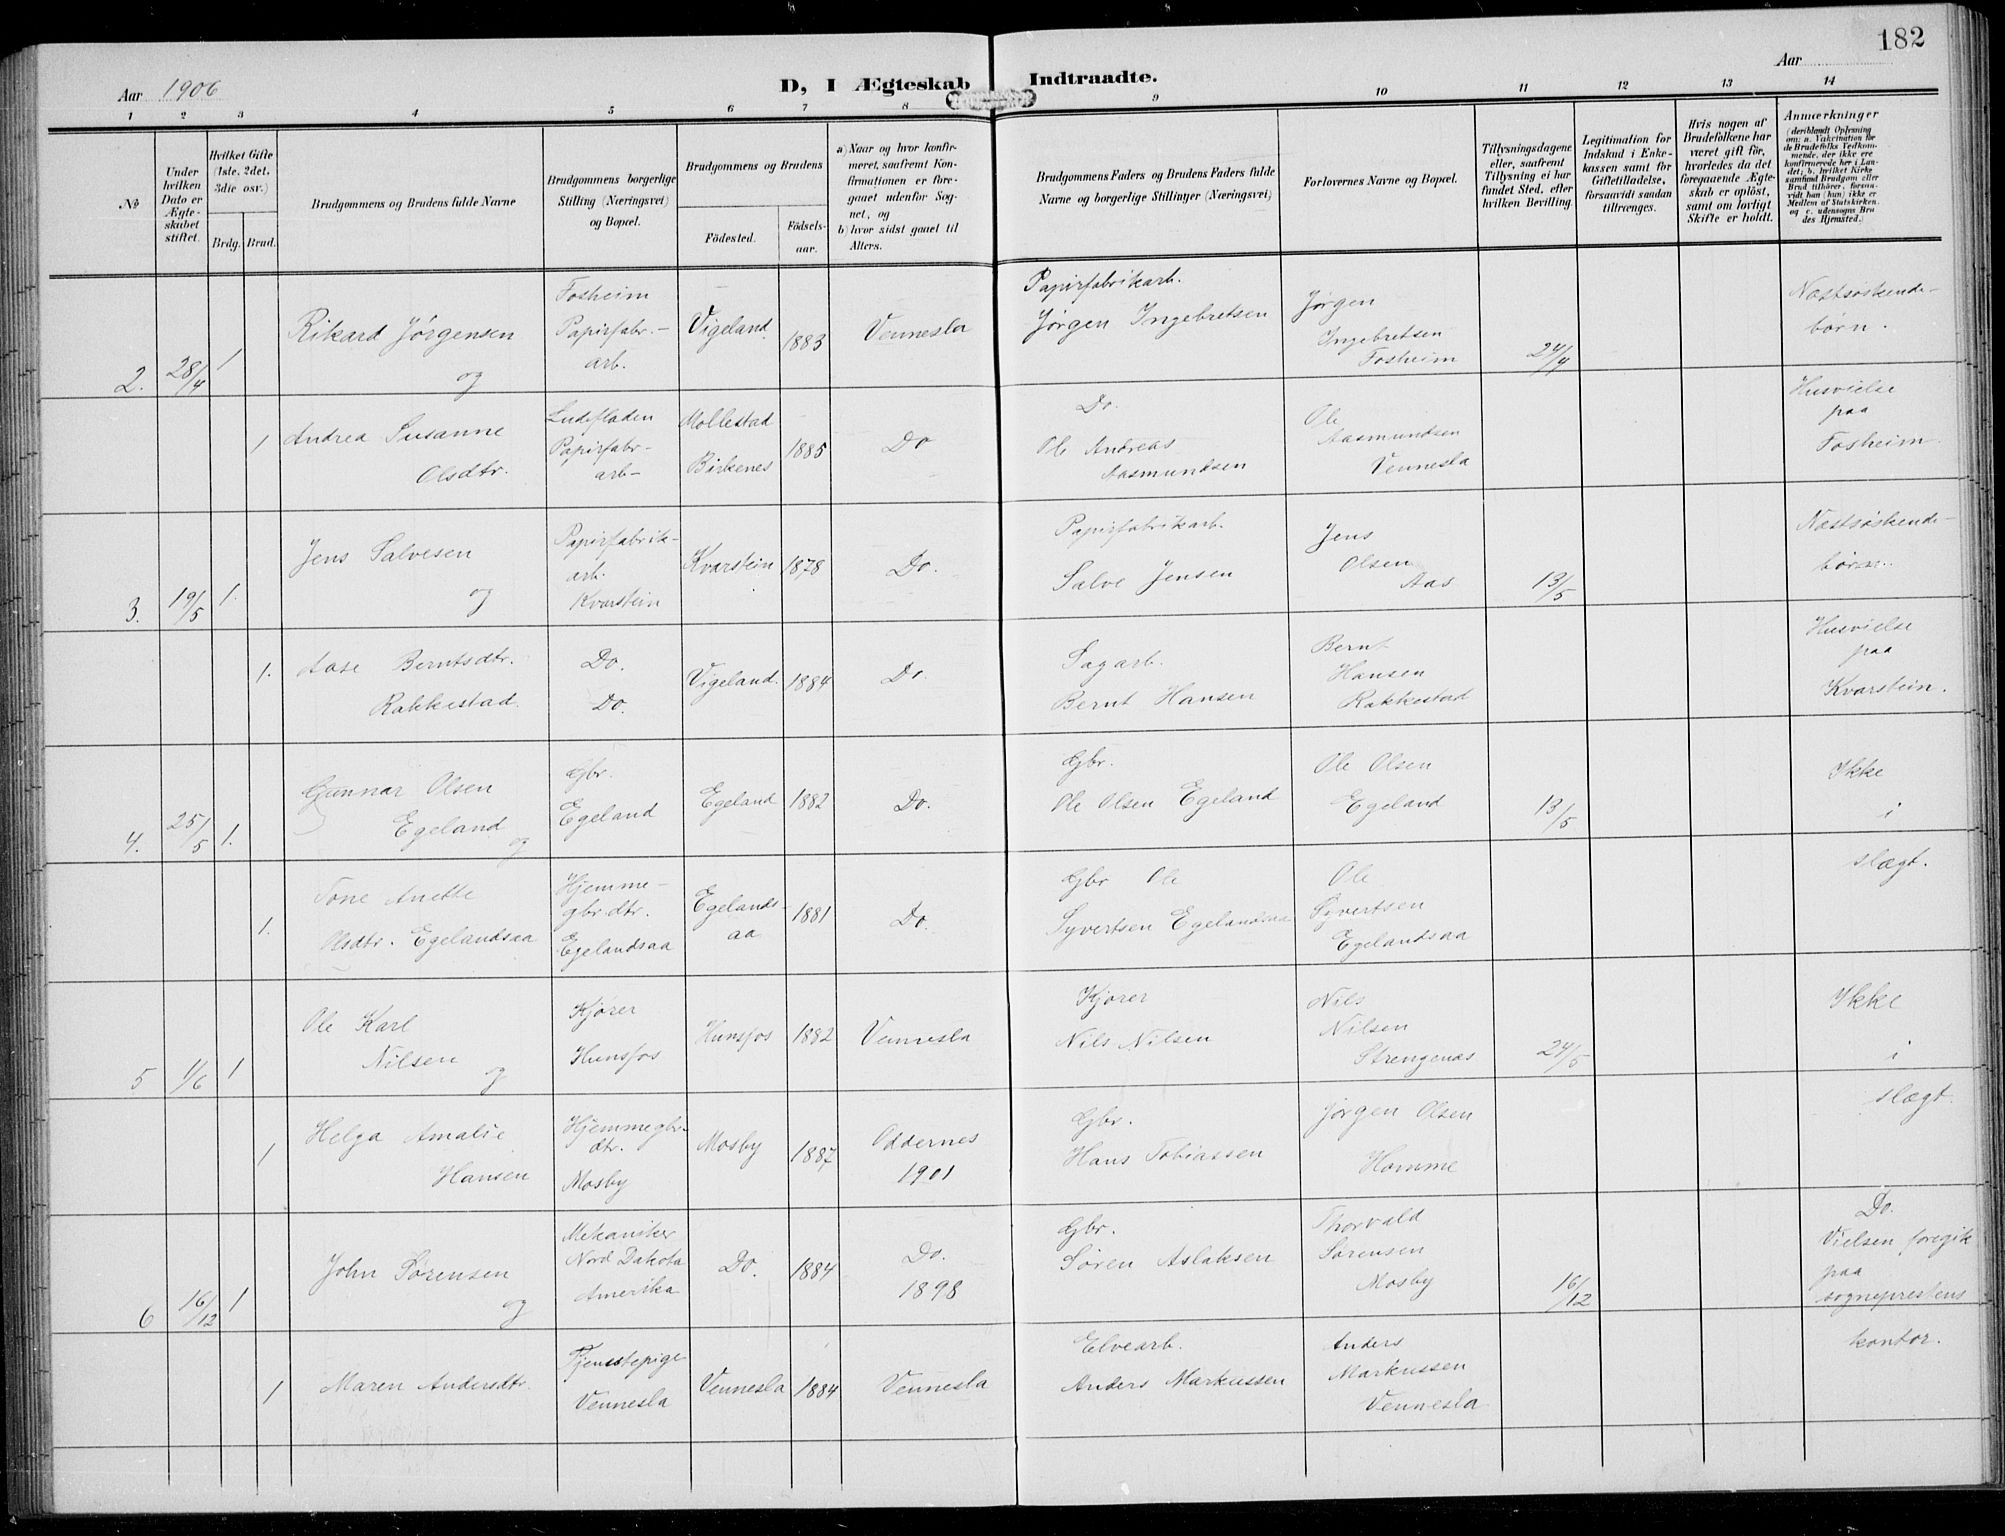 182
Aar 1906
D, I Ægteskab Indtraadte.
Aar
1 2 3 4 5 6 7 8 9 10 11 12 13 14
No
Under hvilken Dato er Ægteskabet stiftet.
Hvilket Gifte (1ste, 2det, 3die osv.)
Brdg. Brud.
Brudgommens og Brudens fulde Navne
Brudgommens borgerlige Stilling (Næringsvei) og Bopæl.
Brudgommens og Brudens
Födested.
Födselsaar.
a) Naar og hvor konfirmeret, saafremt Konfirmationen er foregaaet udenfor Sognet, og
b) hvor sidst gaaet til Alters.
Brudgommens Faders og Brudens Faders fulde Navne og borgerlige Stillinger (Næringsvei)
Forlovernes Navne og Bopæl.
Tillysningsdagene eller, saafremt Tillysning ei har fundet Sted, efter hvilken Bevilling.
Legitimation for Indskud i Enkekassen samt for Giftetilladelse, forsaavidt saadan tiltrænges.
Hvis nogen af Brudefolkene har været gift för, hvorledes da det foregaaende Ægteskab er oplöst, samt om lovligt Skifte er holdt.
Anmærkninger
(deriblandt Oplysning om: a. Vakcination for de Brudefolks Vedkommende, der ikke ere konfirmerede her i Landet; b. hvilket Kirkesamfund Brudgom eller Brud tilhörer, forsaavidt han (hun) ikke er Medlem af Statskirken, og c. udensogns Brudes Hjemsted.)
2. 28/4 1
Rikard Jørgensen
og
Fosheim
Papirfabr.-
arb.
Vigeland
1883
Vennesla
Papirfabrikarb.
Jørgen Ingebretsen
Jørgen
Ingebretsen
Fosheim
24/4
Næstsøskende-
børn.
1
Andrea Susanne
Olsdtr.
Ludefladen
Papirfabr-
arb-
Mollestad
Birkenes
1885
Do
Do.
Ole Andreas
Aasmundsen
Ole
Aasmundsen
Vennesla
Husvielse
paa
Fosheim.
3. 19/5 1.
Jens Salvesen
og
Papirfabrik-
arb.
Kvarstein
Kvarstein
1878
Do.
Papirfabrikarb.
Salve Jensen
Jens
Olsen
Aas
13/5
Næstsøskende-
børn.
1.
Aase Berntsdtr.
Rakkestad.
Do.
Do.
Vigeland.
1884
Do.
Sagarb.
Bernt Hansen
Bernt
Hansen
Rakkestad
Husvielse
paa
Kvarstein.
4. 25/5 1.
Gunnar Olsen
Egeland
og
Gbr.
Egeland
Egeland
1882
Do.
Gbr.
Ole Olsen Egeland
Ole Olsen
Egeland
13/5
Ikke
i
slægt.
1.
Tone Anette
Olsdtr. Egelandsaa
Hjemme-
gbr.dtr.
Egelandsaa
Egelands-
aa
1881
Do.
Gbr Ole
Syvertsen Egelandsaa
Ole
Syvertsen
Egelandsaa
5 1/6 1
Ole Karl
Nilsen
og
Kjører
Hunsfos
Hunsfos
1882
Vennesla
Kjører
Nils Nilsen
Nils
Nilsen
Strengenæs
24/5
Ikke
i
slægt.
1
Helga Amalie
Hansen
Hjemmegbr.
dtr.
Mosby
Mosby
1887
Oddernes
1901
Gbr.
Hans Tobiassen
Jørgen Olsen
Homme
6 16/12 1
John Sørensen
og
Mekaniker
Nord Dakota
Amerika
Do.
1884
Do.
1898
Gbr.
Søren Aslaksen
Thorvald
Sørensen
Mosby
16/12
Do.
Vielsen foregik
paa
sogneprestens
kontor.
1
Maren Andersdtr.
Tjenstepige
Vennesla
Vennesla
1884
Vennesla
Elvearb.
Anders Markussen
Anders
Markussen
Vennesla